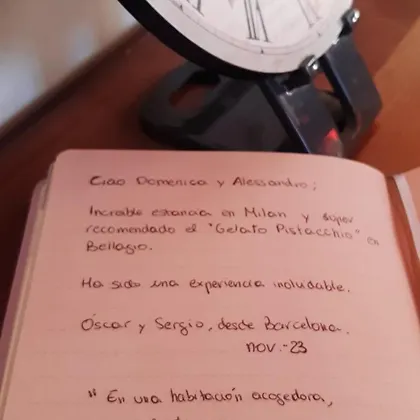 Ciao Domenica y Alessandro;
Increíble estancia en Milan y super
recomendado el "Gelato Pistacchio" en
Bellagio.
Ha sido una experiencia inoludable.
Óscar y Sergio, desde Barcelona.
nov.-23
" En una habitación acogedora,